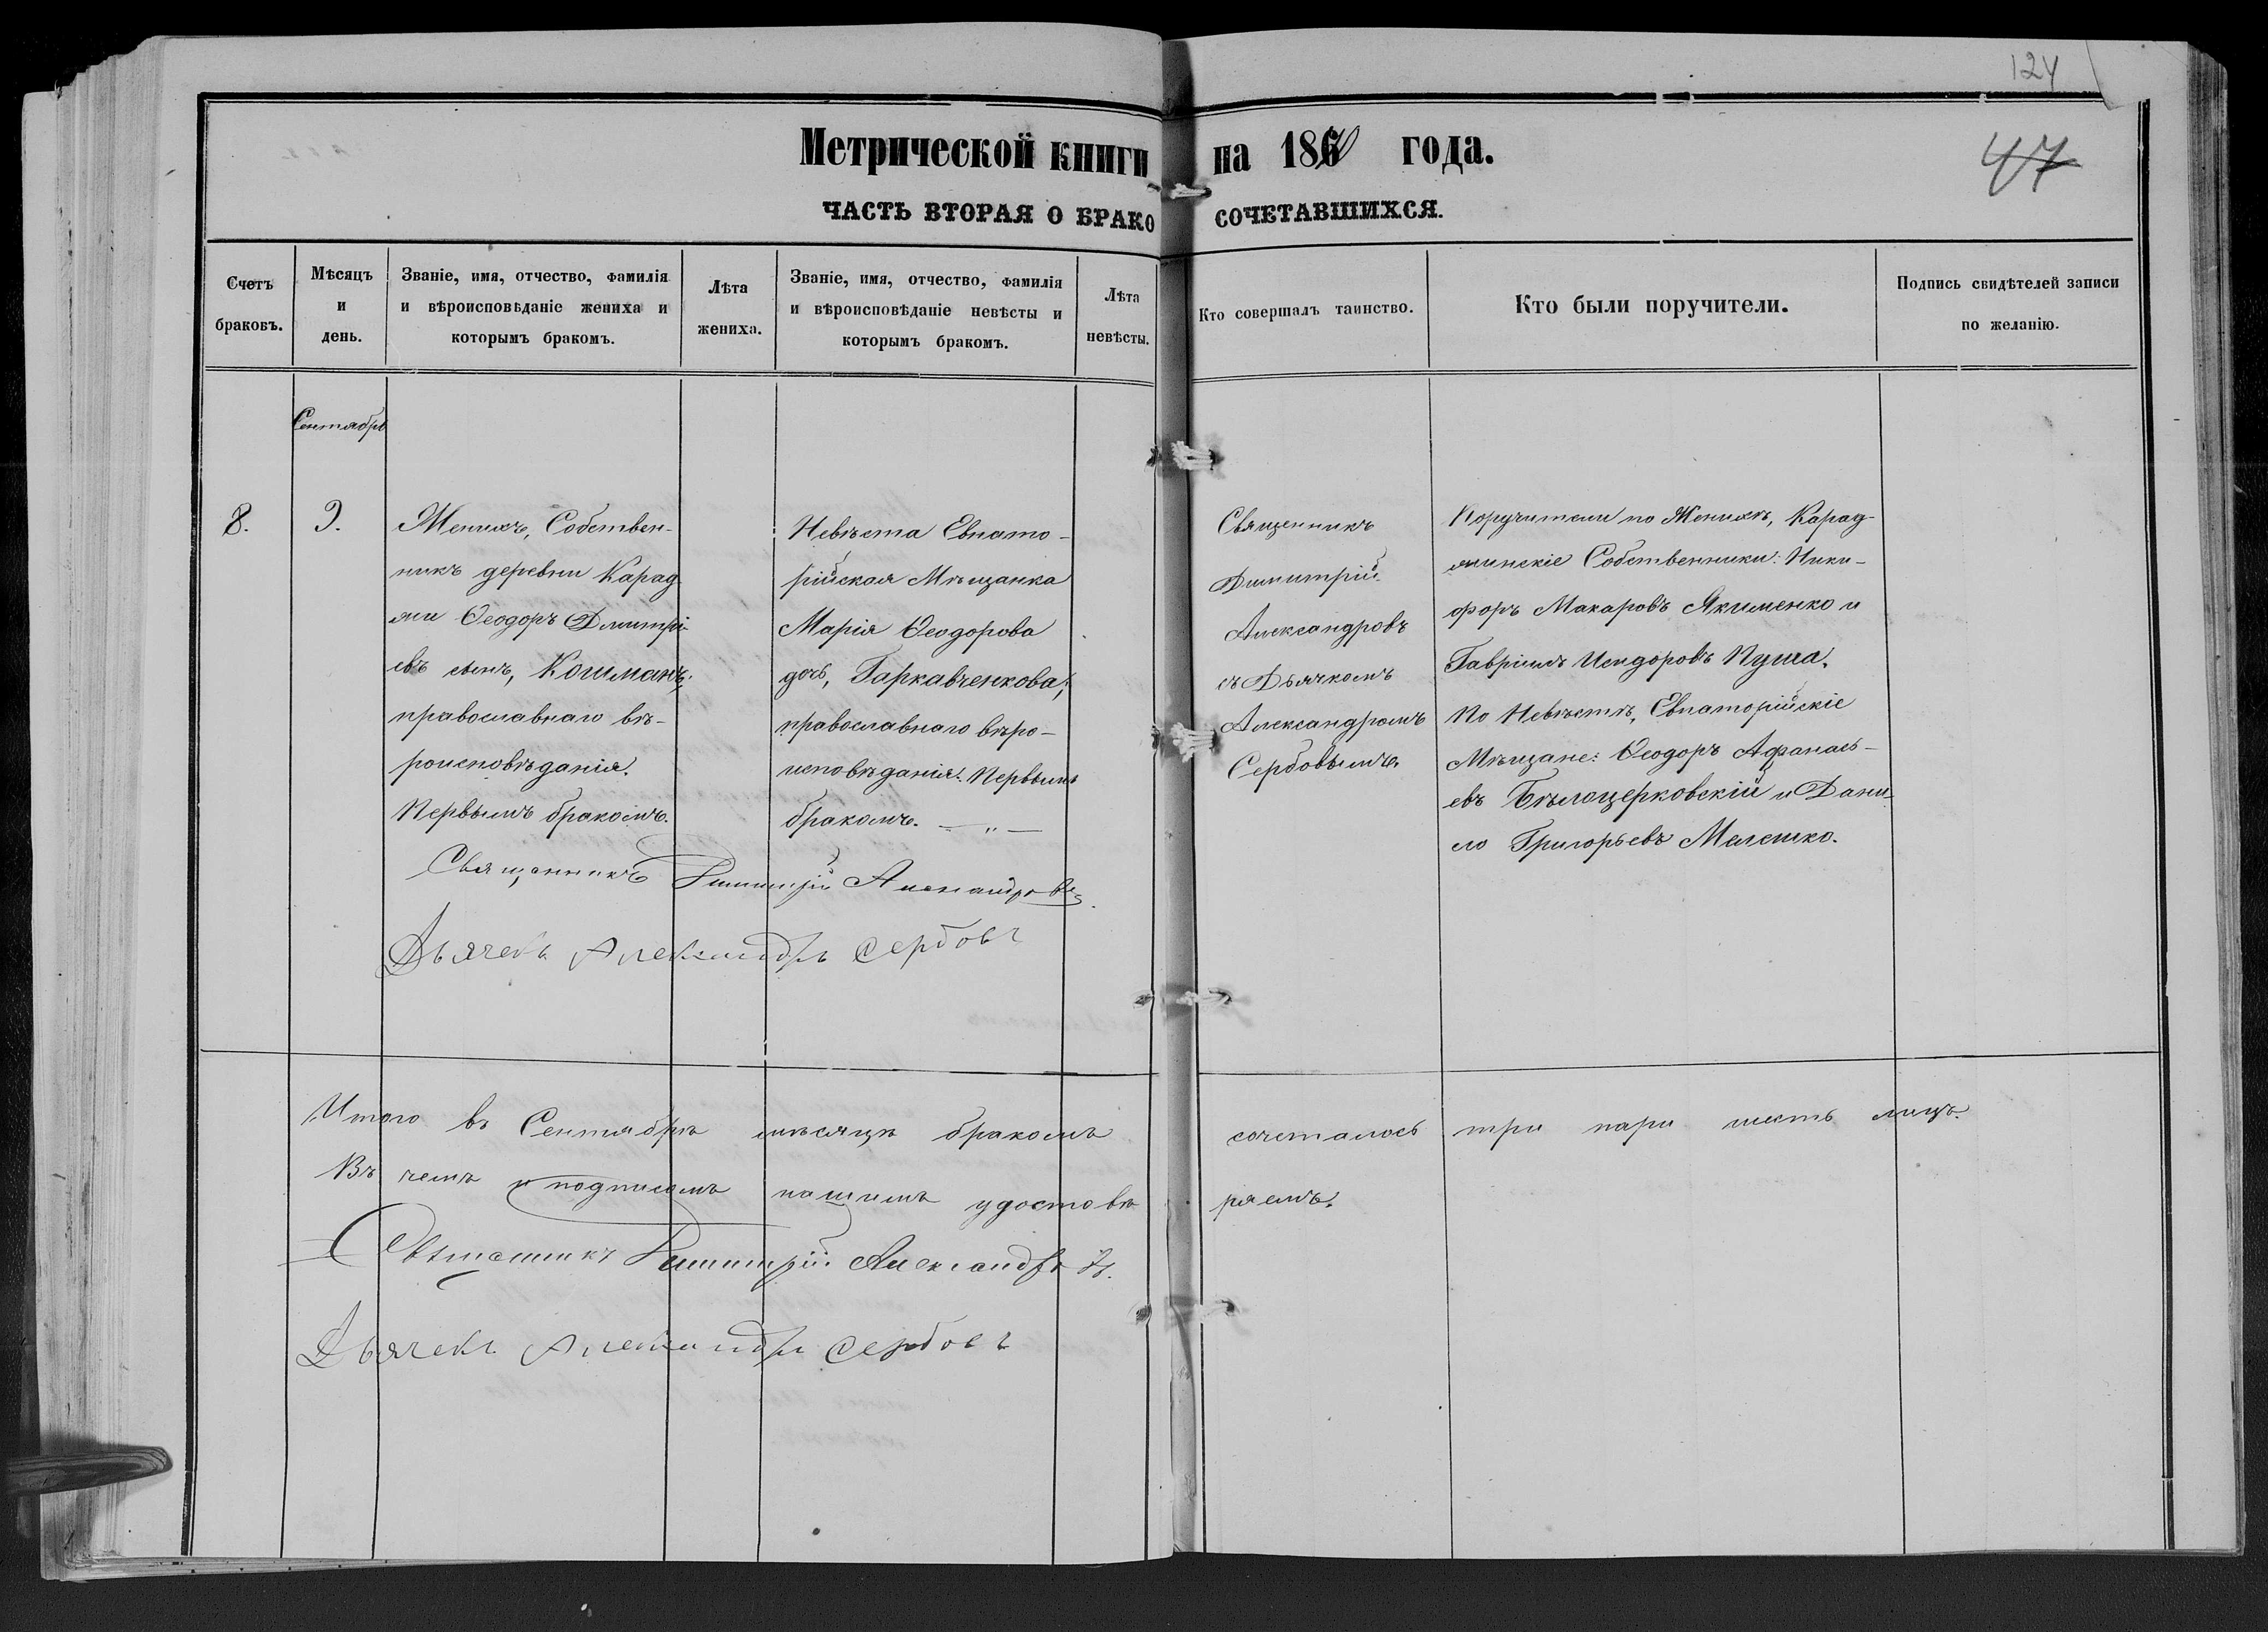 124
47
Метрической книги на 1870 года.
ЧАСТЬ ВТОРАЯ О БРАКОСОЧЕТАВШИХСЯ.
Счетъ
браковъ.
Мѣсяцъ
и
день.
Званіе, имя, отчество, фамилія
и вѣроисповѣданіе жениха и
которымъ бракомъ.
Лѣта
жениха.
Званіе, имя, отчество, фамилія
и вѣроисповѣданіе невѣсты и
которымъ бракомъ.
Лѣта
невѣсты.
Кто совершалъ таинство.
Кто были поручители.
Подпись свидѣтелей записи
по желанію.
Сентябрь
8.
9.
Женихъ, Собствен-
никъ деревни Карад
жи Ѳеодоръ Димитрі-
евъ сынъ, Кошманъ;
православнаго вѣ-
роисповѣданія.
Первымъ бракомъ.
Невѣста Евпато-
рійская Мѣщанка
Марія Ѳеодорова
дочь, Гаркавченкова;
православнаго вѣро-
исповѣданія. Первымъ
бракомъ. — „ —
Священникъ
Димитрій
Александровъ
съ Дьячкомъ
Александромъ
Сербовымъ.
Поручители по Женихѣ, Карад-
жинскіе Собственники: Ники-
форъ Макаровъ Якименко и
Гавріилъ Исидоровъ Пуша.
По Невѣстѣ, Евпаторійскіе
Мѣщане: Ѳеодоръ Афанась-
евъ Бѣлоцерковскій и Дани-
ло Григорьевъ Малешко.
Священникъ Димитрій Александровъ.
Дьячекъ Александръ Сербовъ
Итого въ Сентябрѣ мѣсяцѣ бракомъ сочеталось три пари шесть лицъ.
Въ чемъ и подписомъ нашимъ удостовѣряемъ.
Священникъ Димитрій Александровъ.
Дьячекъ Александръ Сербовъ